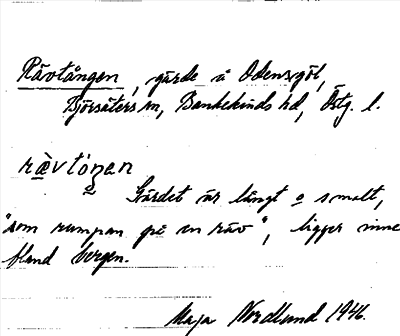 Rävtången, gärde å Odensgöl,
Björsäters sn, Bankekinds hd, Östg. l.
rävtåŋan
Gärdet är långt o smalt,
"som rumpan på en räv", ligger inne
bland bergen.
Maja Nordlund 1946.